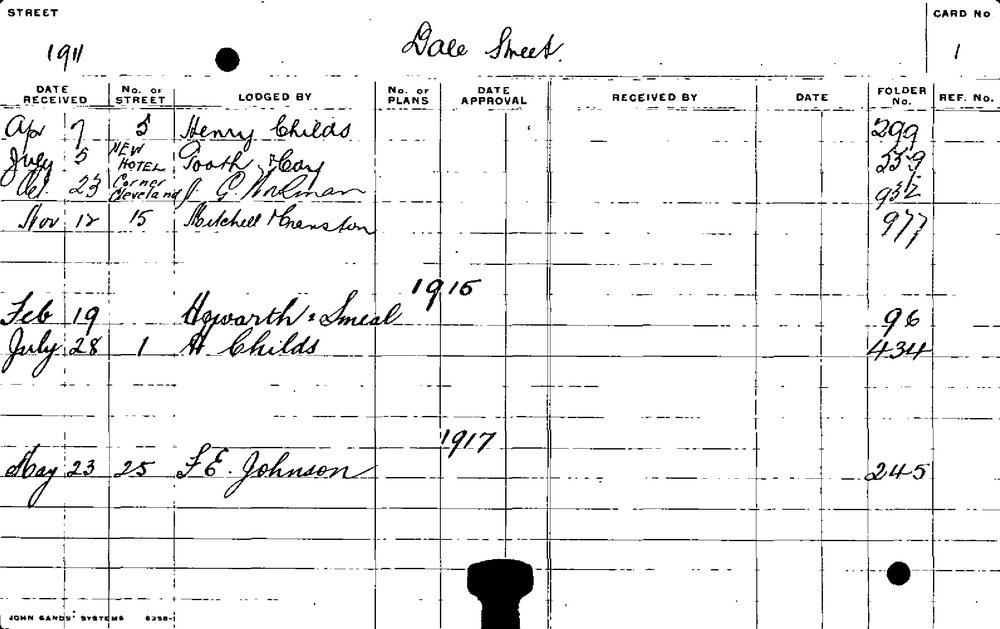 STREET
CARD No
1911 Dale Street. 1
DATE RECEIVED No. OF STREET LODGED BY No. OF PLANS DATE APPROVAL RECEIVED BY DATE FOLDER No. REF. No.
Apr 7 5 Henry Childs 299
July 5 NEW HOTEL Tooth & Coy 559
Oct 23 Corner Cleveland J. G. 932
Nov 12 15 Mitchell & Cranston 977
1915
Feb 19 Howarth & Smeal 96
July 28 1 H Childs 434
1917
May 23 25 F E. Johnson 245
JOHN SANDS' SYSTEMS 6358-